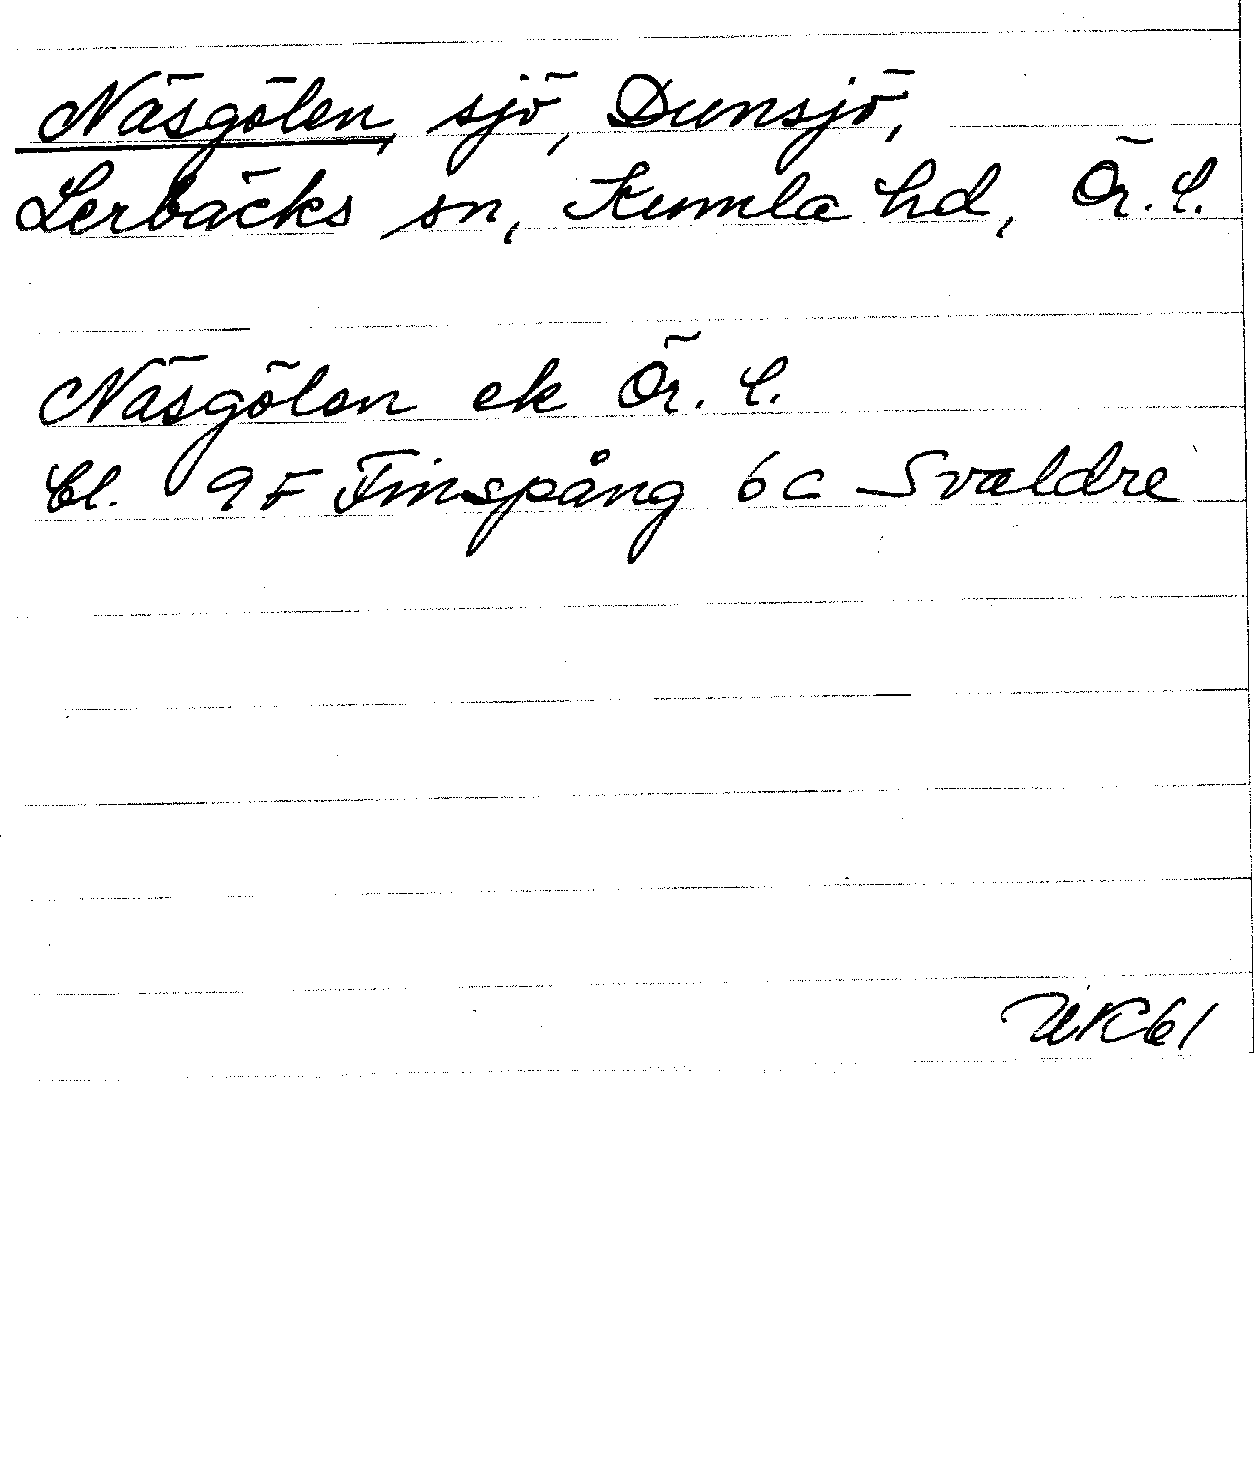 Näsgölen, sjö, Dunsjö,
Lerbäcks sn, Kumla hd, Ör. l.
Näsgölen ek Ör. l.
bl. 9F Finspång 6c Svaldre